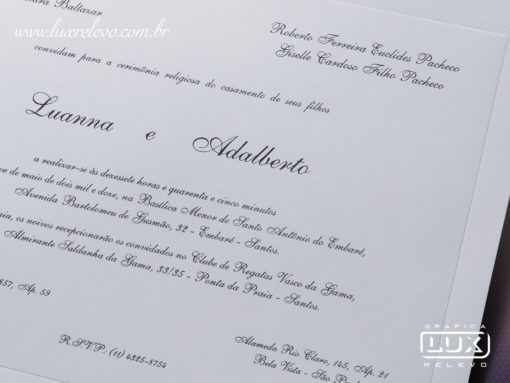 www.luxrelevo.com.br
Baltazar
Roberto Ferreira Euclides Pacheco
Giselle Cardoso Filho Pacheco
convidam para a cerimônia religiosa do casamento de seus filhos
Luanna e Adalberto
a realizar-se às dezessete horas e quarenta e cinco minutos
de maio de dois mil e doze, na Basílica Menor de Santo Antônio do Embaré,
Avenida Bartolomeu de Gusmão, 32 - Embaré - Santos.
os noivos recepcionarão os convidados no Clube de Regatas Vasco da Gama,
Almirante Saldanha da Gama, 33/35 - Ponta da Praia - Santos.
857, Ap. 59
R.S.V.P.: (11) 4325-8754
Alameda Rio Claro, 145, Ap. 21
Bela Vista - São
GRÁFICA
LUX
RELEVO